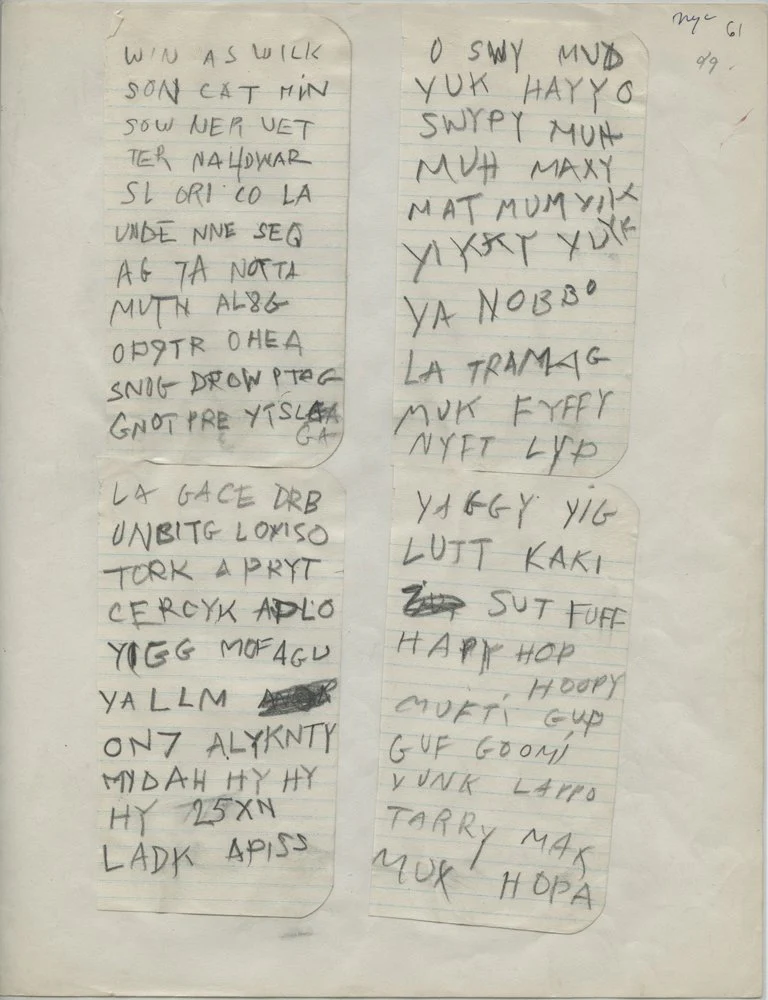 nyc 61
WIN AS WILK
SON CAT MIN
SOW NER VET
TER NAHDWAR
SL ORI CO LA
UNDE NNE SEQ
AG TA NOTTA
MUTN AL8G
OP9TR OHEA
SNOG DROW PTAG
GNOT PRE YTSL
GA
O SWY MUD
YUK HAYYO
SWYPY MUH
MUH MAXY
MAT MUM YIK
YIKKY YUK
YA NOBBO
LA TRAMAG
MUK FYFFY
NYFT LYP
LA GACE DRB
UNBITG LOXISO
TORK A PRYT
CERCYK APLO
YIGG MOFAGU
YA LLM
ON7 ALYKNTY
MYDAH HY HY
HY 25XN
LADK APISS
YAGGY YIG
LUTT KAKI
SUT FUFF
HAPY HOP
HOOPY
MUFTI GUP
GUF GOOMI
YUNK LAPPO
TARRY MAK
MUX HOPA